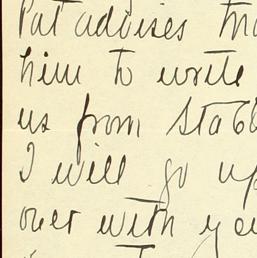 Pat advises
him to write
us from
I will go up
over with